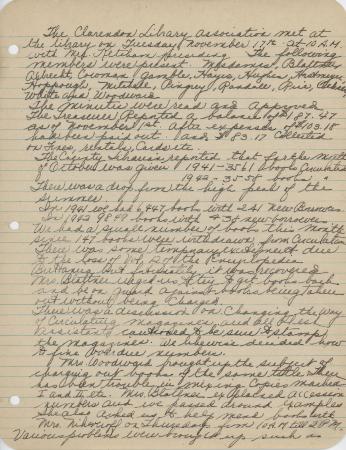 The Clarendon Library Association met at
the library on Tuesday, November 17th at 10 A.M.
with Mrs. Ketcham presiding. The following
members were present. Mesdames, Blattner,
Albrecht, Cowman, Gamble, Hayes, Hughes,
Hoppough, Mitchell, Pingrey, Randall, Rice,
White and Woodward.
The minutes were read and approved
The Treasurer Reported a balance of $187.47
as of November 1st. After expenses of $103.18
had been paid out. And $83.17 Collected
on Fines, rentals, Cards etc.
The County Librarian reported that for the month
of October was given 1941-3561 books Circulation
1942-3558 books
There was a drop from the high peak of the
Summer.
In 1941 we had 6447 books with new Borrowers.
In 1942 9849 books with 43 new borrowers
We had a small number of books this month
since 147 books were withdrawn from Circulation
There was some temporary excitement due
to the loss of Vol. 12 of the Encyclopedia
Brittanica but fortunately it was recovered
Mrs. Blattner urged us to try to get books back
and be on guard against books being taken
out without being Charged.
There was a discussion on Changing the way
of Circulating magazines, and after
we voted to use a stamp
the magazines. We likewise decided how
to fine over due numbers.
Mrs. Woodward brought up the subject of
charging out books of the same title. There
has been trouble in mixing Copies marked
I and II, etc. Mrs. Blattner explained accession
numbers and we passed around examples
She also asked us to help mend books with
Mrs. on Thursday from 10 A.M. till 2 P.M.
Various problems were brought up such as